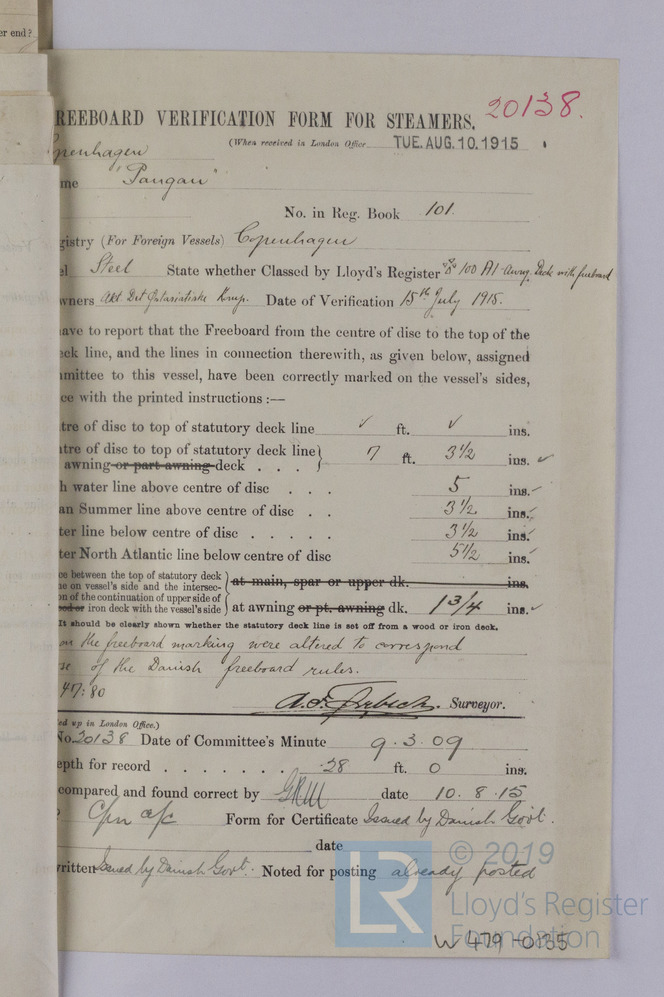 er end?
REEBOARD VERIFICATION FORM FOR STEAMERS. 20138.
(When received in London Office TUE. AUG. 10. 1915
openhagen
me "Pangan"
No. in Reg. Book 101
gistry (For Foreign Vessels) Copenhagen
el Steel State whether Classed by Lloyd's Register 100 A1 Awng. Deck with freeboard
wners Akt. Det Østasiatiske Komp. Date of Verification 15th July 1915.
ave to report that the Freeboard from the centre of disc to the top of the
eck line, and the lines in connection therewith, as given below, assigned
mmittee to this vessel, have been correctly marked on the vessel's sides,
ce with the printed instructions :—
tre of disc to top of statutory deck line ✓ ft. ✓ ins.
tre of disc to top of statutory deck line
awning or part awning deck . . . 7 ft. 3½ ins. ✓
h water line above centre of disc . . . 5 ins. ✓
an Summer line above centre of disc . . 3½ ins. ✓
ter line below centre of disc . . . . . 3½ ins. ✓
ter North Atlantic line below centre of disc 5½ ins. ✓
ce between the top of statutory deck
ne on vessel's side and the intersec-
on of the continuation of upper side of
iron deck with the vessel's side
at main, spar or upper dk. ins.
at awning or pt. awning dk. 1 3/4 ins. ✓
It should be clearly shown whether the statutory deck line is set off from a wood or iron deck.
the freeboard marking were altered to correspond
of the Danish freeboard rules.
47:80
Surveyor.
ed up in London Office.)
No. 20138 Date of Committee's Minute 9.3.09
epth for record . . . . . . . 28 ft. 0 ins.
compared and found correct by date 10.8.15
? Form for Certificate Issued by Danish Govt.
date
written Issued by Danish Govt. Noted for posting already posted
© 2019
LR
Lloyd's Register
Foundation
W 479-0135